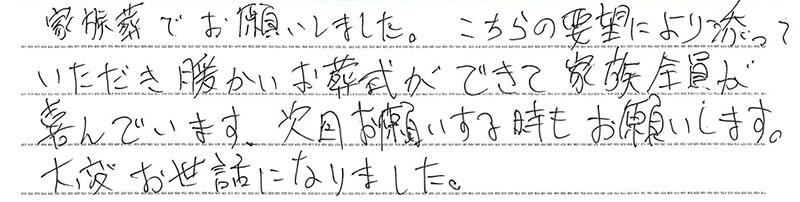 家族葬でお願いしました。こちらの要望により添って
いただき暖かいお葬式ができて家族全員が
喜んでいます、次回お願いする時もお願いします。
大変お世話になりました。